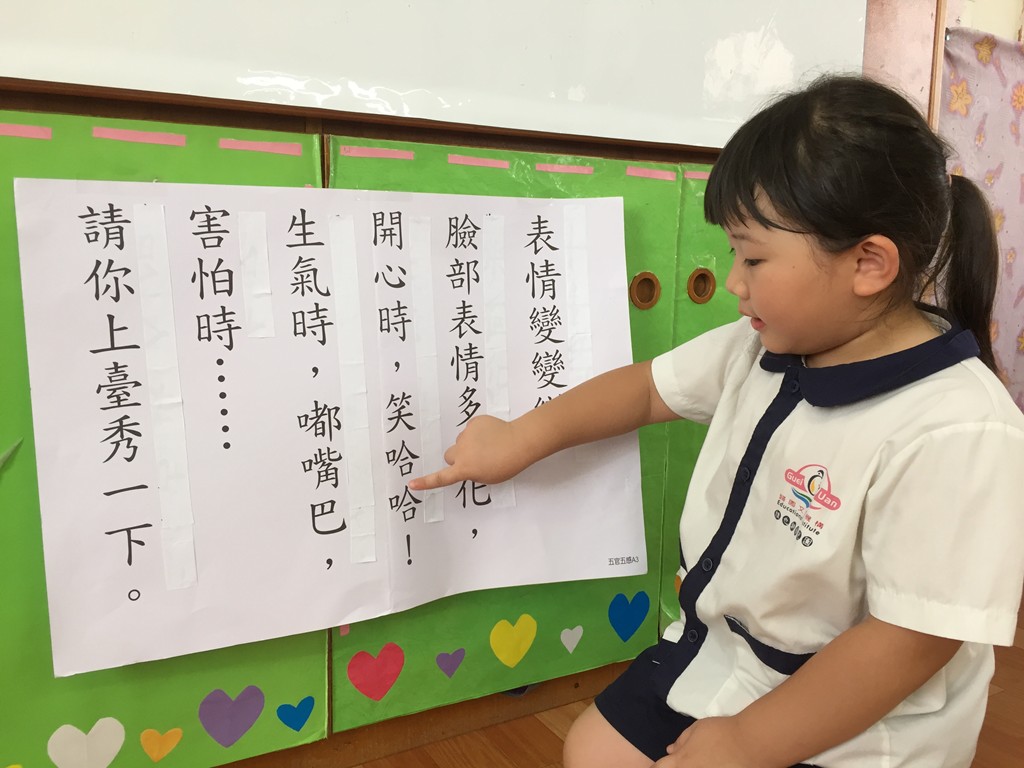 表情變變
臉部表情多化，
開心時，笑哈哈！
生氣時，嘟嘴巴，
害怕時……
請你上臺秀一下。
五官五感A3
Guei Uan
Educational Institute